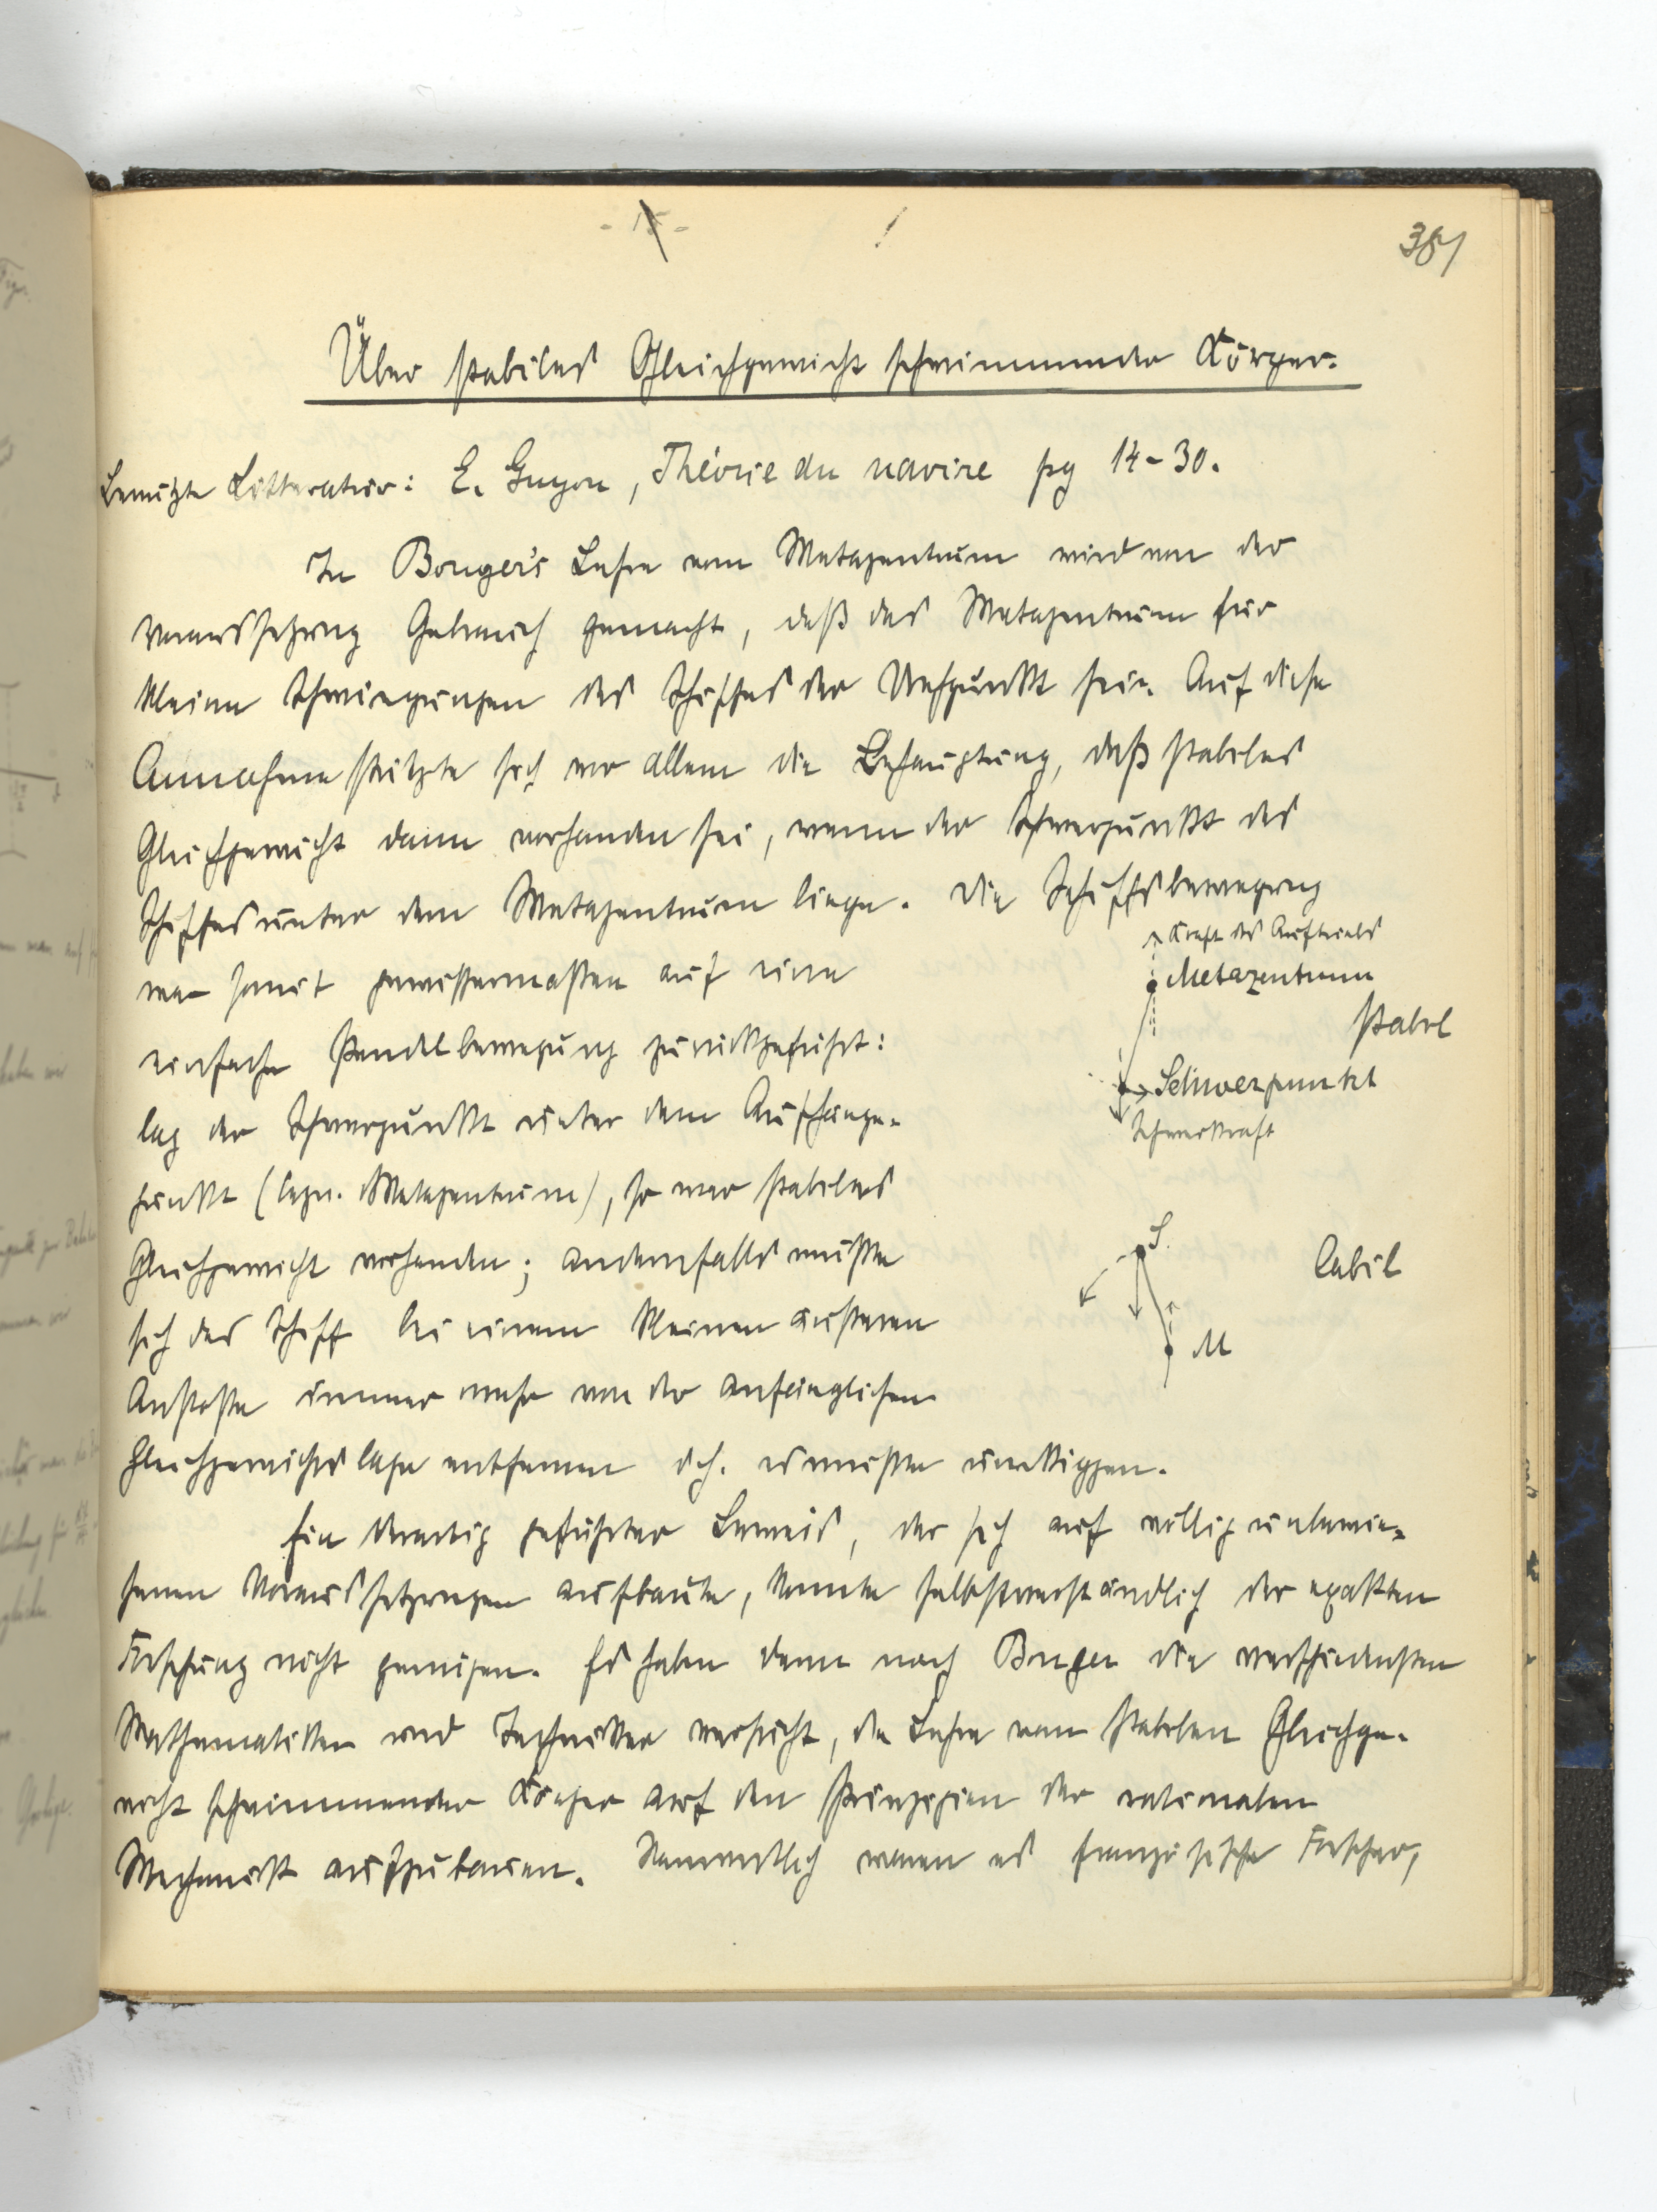 - 15 -
!
387
Über stabiles Gleichgewicht schwimmender Körper.
Benützte Litteratur: E. Guyon, Théorie du navire pg 14-30.
In Bouger's Lehre vom Metazentrum wird von der
Voraussetzung Gebrauch gemacht, daß das Metazentrum für
kleine Schwingungen des Schiffes der Drehpunkt sei. Auf diese
Annahme stützte sich vor allem die Behauptung, daß stabiles
Gleichgewicht dann vorhanden sei, wenn der Schwerpunkt des
Schiffes unter dem Metazentrum liege. Die Schiffsbewegung
war somit gewissermaßen auf eine
einfache Pendelbewegung zurückgeführt:
lag der Schwerpunkt unter dem Aufhänge-
punkt (bezw. Metazentrum), so war stabiles
Gleichgewicht vorhanden; andernfalls mußte
sich das Schiff bei einem kleinen äußeren
Anstoße immer mehr von der anfänglichen
Gleichgewichtslage entfernen d.h. es mußte umkippen.
Kraft des Auftriebs
Metazentrum
stabil
Schwerpunkt
Schwerkraft
S.
labil
M
Ein derartig geführter Beweis, der sich auf völlig unbewie-
senen Voraussetzungen aufbaute, konnte selbstverständlich der exakten
Forschung nicht genügen. Es haben denn nach Bouger die verschiedensten
Mathematiker und Techniker versucht, die Lehre vom stabilen Gleichge-
wicht schwimmender Körper auf den Prinzipien der rationalen
Mechanik aufzubauen. Namentlich waren es französische Forscher,